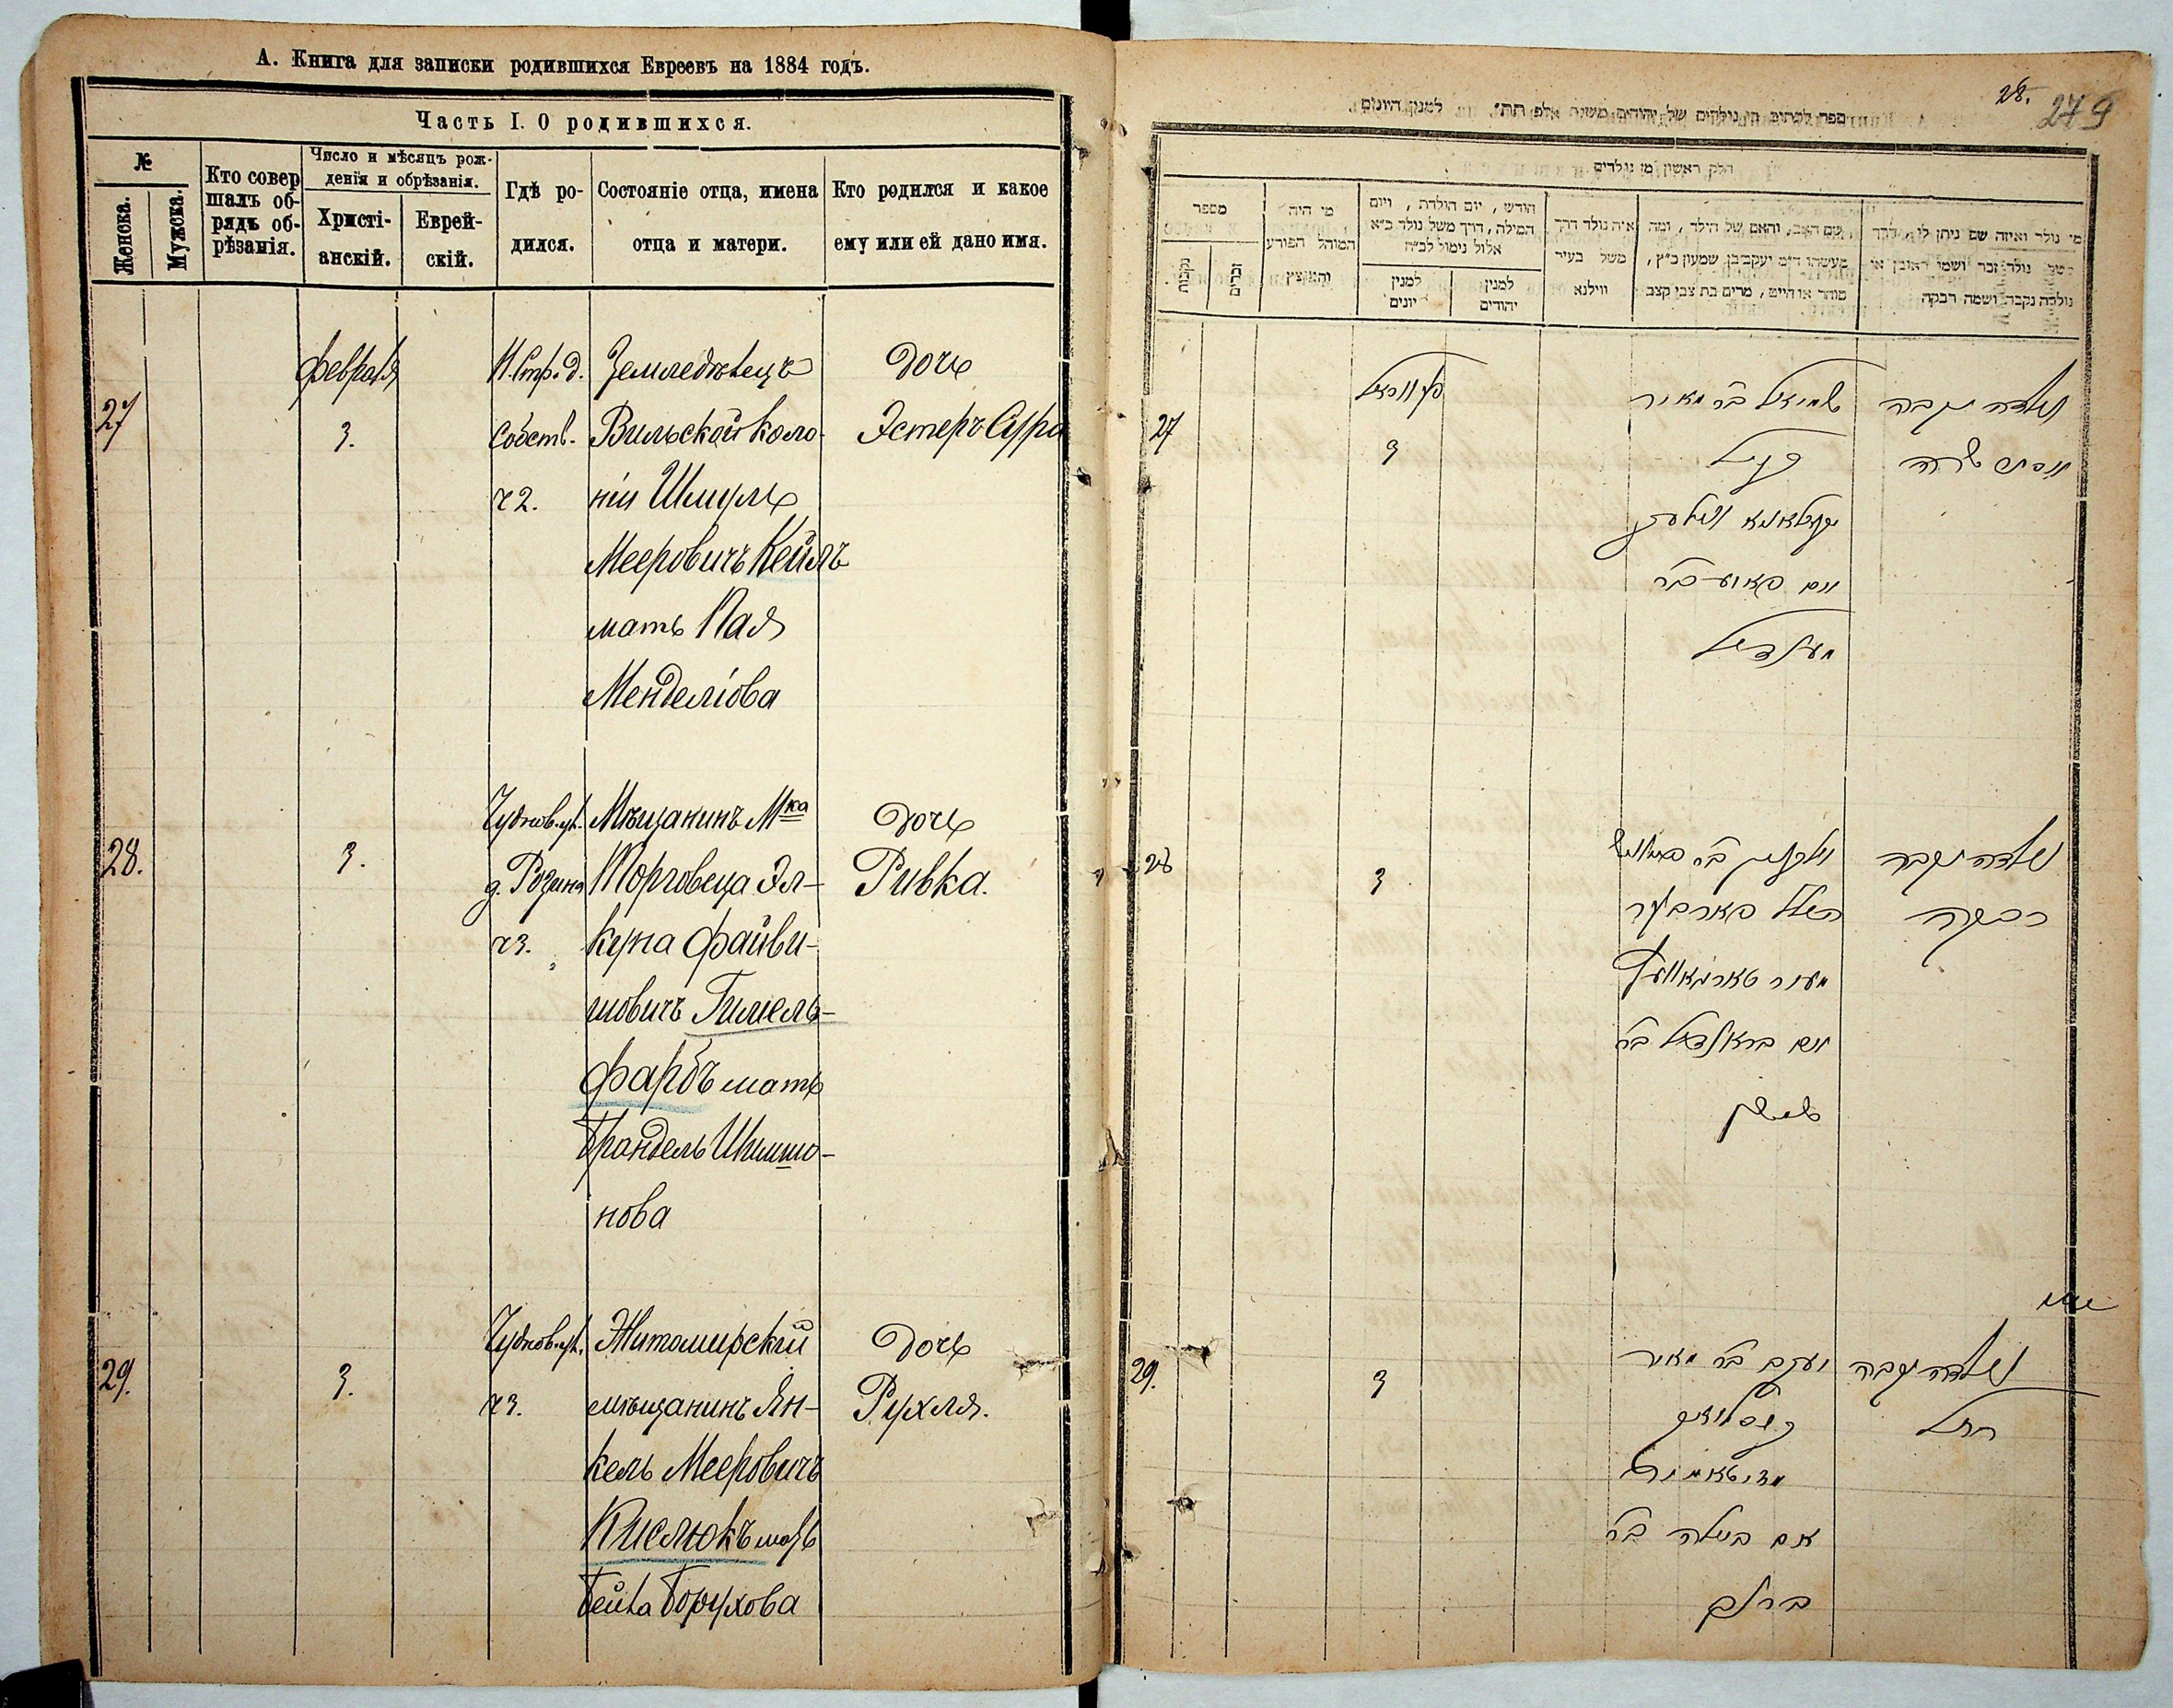 А. Книга для записки родившихся Евреевъ на 1884 годъ.
Часть I. О родившихся.
№
Женска.
Мужска.
Кто совершалъ обрядъ обрѣзанія.
Число и мѣсяцъ рожденія и обрѣзанія.
Христіанскій.
Еврейскій.
Гдѣ родился.
Состояніе отца, имена отца и матери.
Кто родился и какое ему или ей дано имя.
27
февраля
3.
Н. Стр. д.
Собств.
ч 2.
Земледѣлецъ
Вильской коло-
ніи Шмуль
Мееровичъ Кейлъ
мать Пая
Менделіова
Дочь
Эстеръ Сура
28.
3.
Чуднов. ул.
д.
ч 3.
Мѣщанинъ Мка
Торговеца Эл-
куна Файви-
шовичъ Гимель-
фарбъ мать
Брандель Шимшо-
нова
Дочь
Ривка.
29.
3.
Чуднов. ул.
ч 3.
Житомирскій
мѣщанинъ Ян-
кель Мееровичъ
Кислюкъ мать
Бейла Борухова
Дочь
Рухля.
28.
279
חלק ראשון מן נולדים
מספר
נקבות
זכרים
מי היה המוהל הפורע והמוצץ
חודש, יום הולדת, ויום המילה, דרך משל נולד כ״א אלול נימול לכ״ח
למנין יונים
למנין יהודים
איה נולד דרך משל בעיר ווילנא
שם האב, והאם של הילד, ומה מעשהו ד״מ יעקב בן שמעון כ״ץ, סוחר או חייט, מרים בת צבי קצב
מי נולד ואיזה שם ניתן לו, דרך משל נולד זכר ושמו ראובן או נולדה נקבה ושמה רבקה
27
3
שמואל בר מאיר
קייל
מענדיל
נולדה נקבה
שרה
28
3
אם בראנדיל בר
שמשון
נולדה נקבה
רבקה
29.
3
יעקב בר מאיר
אם ביילה בר
ברוך
נולדה נקבה
רחל